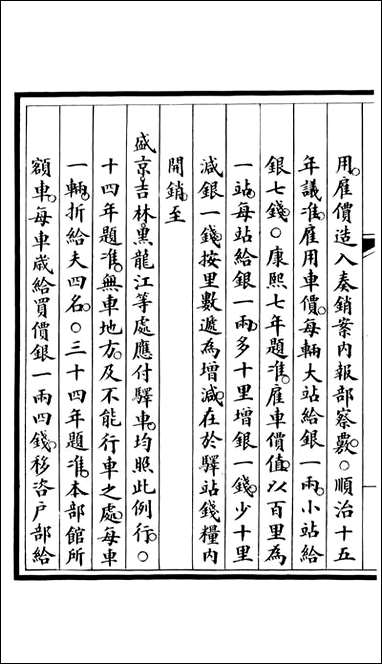 用。雇價造入奏銷案內報部察覈。○順治十五
年議准。雇用車價。每輛大站給銀一兩。小站給
銀七錢。○康熙七年題准。雇車價值。以百里為
一站。每站給銀一兩。多十里增銀一錢。少十里
減銀一錢。按里數遞為增減。在於驛站錢糧內
開銷。至
盛京。吉林黑龍江等處應付驛車。均照此例行。○
十四年題准。無車地方。及不能行車之處。每車
一輛。折給夫四名。○三十四年題准。本部館所
額車。每車歲給買價銀一兩四錢。移咨戶部給